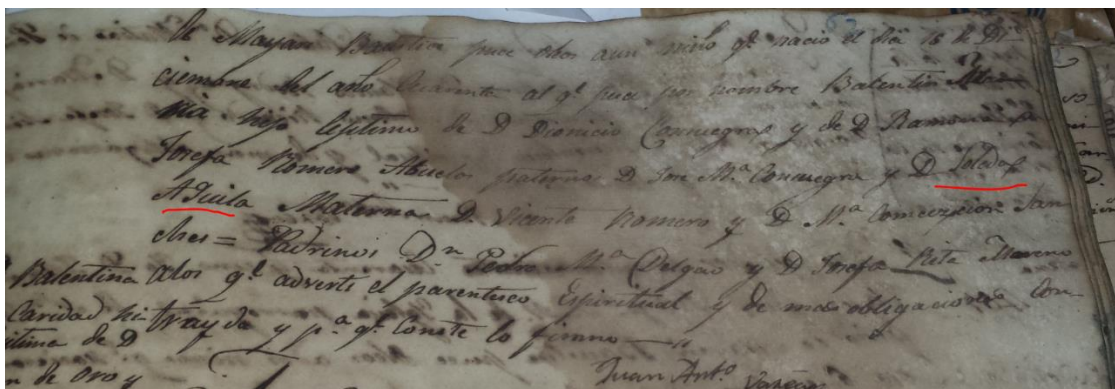 de Mayan Bautice puse oleos aun niño q.e nacio el dia 16 de Di
ciembre del año Cuarenta al q.e puse por nombre Balentin
hijo lejitimo de D Dionicio Consuegra y de D Ramona
Josefa Romero Abuelos paterno D Jose M.a Consuegra y D Soledad
Aguila Materna D. Vicente Romero y D M.a Concepcion San
ches = Padrinos D.n Pedro M.a Delgao y D Josefa Rita Moreno
Balentina alos q.e adverti el parentesco Espiritual y de mas obligaciones Con
Caridad hi trayda y p.a q.e Conste lo firmo
itima de D
n de oro y Juan Ant.o